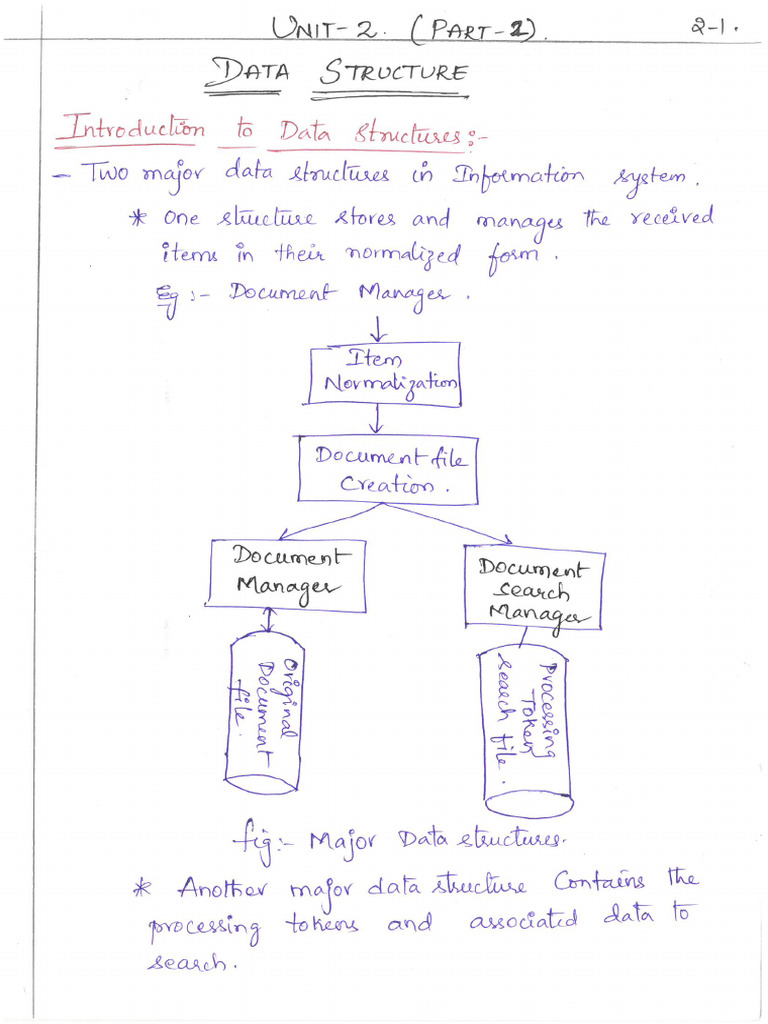 UNIT-2. (PART-1).
2-1.
DATA STRUCTURE
Introduction to Data Structures:-
- Two major data structures in Information system.
* One structure stores and manages the received
items in their normalized form.
Eg:- Document Manager.
Item
Normalization
Document file
Creation.
Document
Manager
Document
Search
Manager
Original
Document
file.
Processing
Token
search file.
fig:- Major Data structures.
* Another major data structure Contains the
processing tokens and associated data to
search.